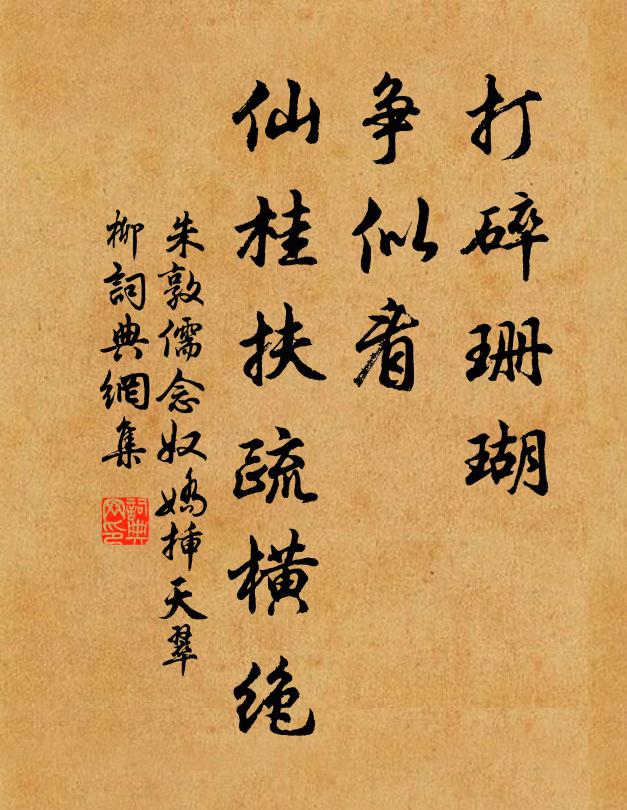 打碎珊瑚
争似看
仙桂扶疏横绝
朱敦儒念奴娇插天翠
柳詞典網集
詞典网印